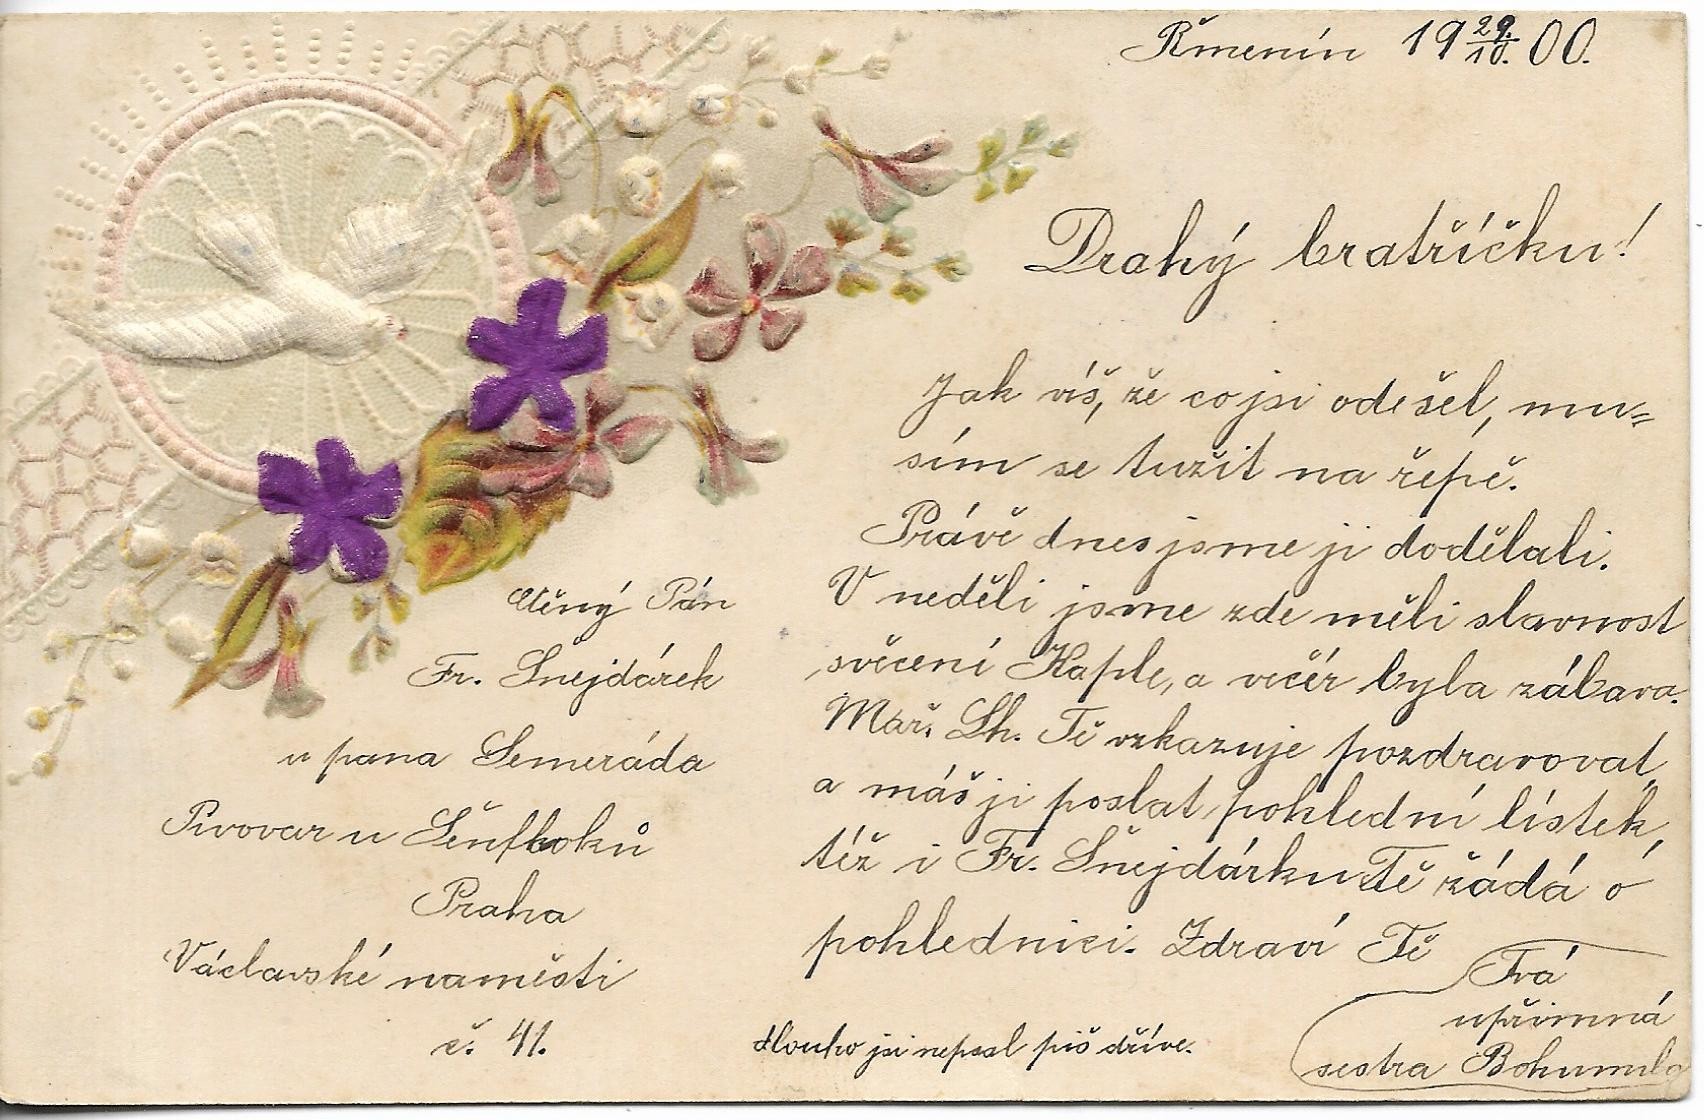 Řmenín 19 29./10. 00.
Drahý bratříčku!
Jak víš, že co jsi odešel, mu=
sím se tužit na řepě.
Právě dnes jsme ji dodělali.
V neděli jsme zde měli slavnost
svěcení Kaple, a večér byla zábava.
Mař. Lh. Tě vzkazuje pozdravovat,
a máš ji poslat pohlední lístek,
též i Fr. Šnejdárku Tě žádá o
pohlednici. Zdraví Tě
Tvá
upřimná
sestra Bohumila
dlouho jsi nepsal piš dříve.
Ctěný Pán
Fr. Šnejdárek
u pana Semeráda
Pivovar u Šenfloků
Praha
Václavské naměsti
č. 41.